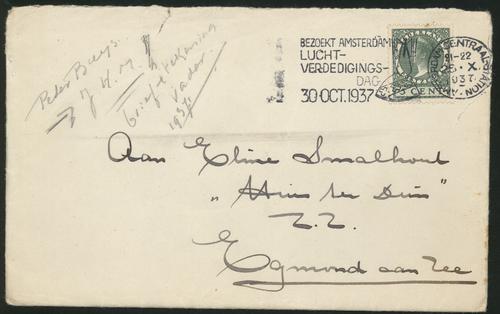 Peter Buys.
brief + tekening
vader
1937
BEZOEKT AMSTERDAM
LUCHT-
VERDEDIGINGS-
DAG
30 OCT. 1937
NEDERLAND
5 CENT
CENTRAAL STATION
21-22
25.X
1937
Aan Eline Smalhout
„Huis ter Duin"
Z.Z.
Egmond aan Zee